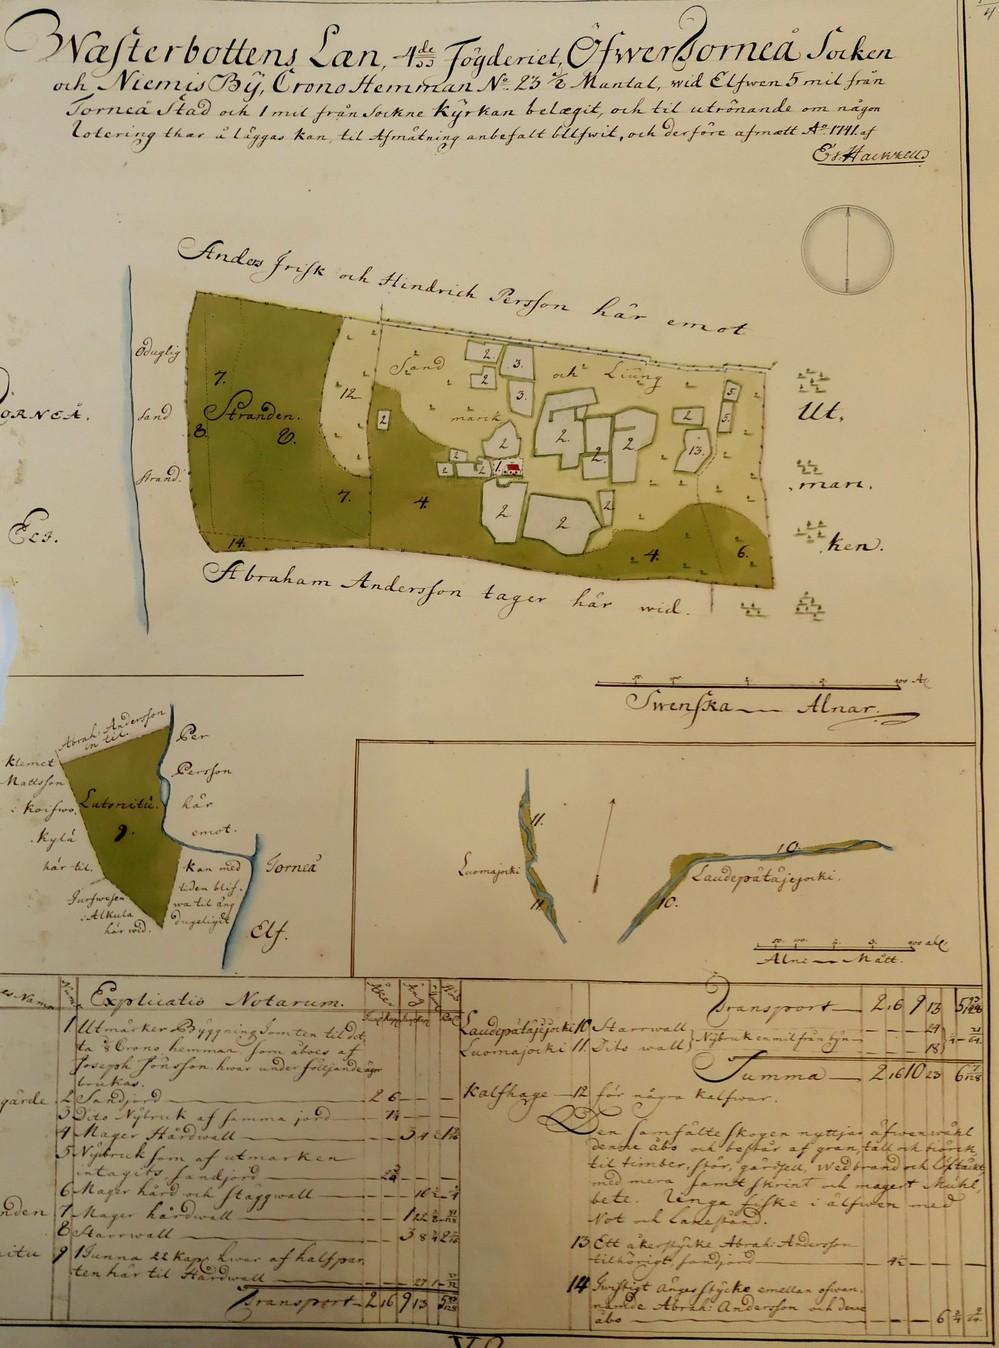 Wästerbottens Län, 4de Fögderiet, Öfwer Torneå Socken
och Niemis Bÿ, Crono Hemman No. 23 ½ Mantal, wid Elfwen 5 mil från
Torneå Stad och 1 mil från Sockne Kÿrkan belægit, och til utrönande om någon
lotering thar å läggas kan, til Afmätning anbefalt blifwit, och derföre afmätt Ao. 1741. af
Anders Frisk och Hindrich Persson här emot
Oduglig
sand
strand.
7.
Stranden.
8.
8.
7.
14.
12.
Sand
och Liung
marck
2.
2.
3.
3.
2
2
2
2
1.
2.
2.
2
2
2
2
2
5
5
13.
4.
4.
6.
Ut,
marc.
ken.
ORNEÅ.
Elf.
Abraham Andersson tager här wid.
Swenska Alnar.
Abrah: Andersson
in til.
Klemet
Mattsson
Kylä
här til.
i Alkula
här wid.
9.
Per
Persson
här
emot.
Torneå
Elf.
kan med
tiden blif-
wa til äng
dugeligit
11.
Luomajocki
11.
10.
Laudepätäjejocki.
10.
Alne Mått.
Explicatio Notarum.
1 Utmärker Byggningstomten til det-
ta Crono hemman som åboes af
Joseph Jönsson hwar under följande äger
brukas.
2 Sandjord 2 6
3 Dito Nÿbruk af samma jord
4 Mager Hårdwall
5 Nÿbruk som af utmarken
intagits sandjord
6 Mager hård och stäggwall
7 Mager hårdwall
8 Starrwall
9 1 Tunna 22 Kapp. hwar af halfpar-
ten här til Hårdwall
Transport 2 16 9 13
Transport 2 16 9 13
Laudepätäjejocki 10 Starrwall
Luomajocki 11. Dito wall
Nÿbruk en mil från bÿn
Summa 2 16 10 23
Kalfhage 12 för några kalfwar.
Den samfälte skogen nyttjar äfwenwähl
denne åbo och består af gran, tall och biörck
til timber, stör, gärdsell, wedbrand och Löftäckt
med mera samt skrint och magert Muhl,
bete. Ringa fiske i älfwen med
Not och
13 Ett åkerstÿcke Abrah: Andersson
tilhörigt, sandjord
14 Twistigt Ängesstÿcke emellan ofwan-
nämde Abrah: Andersson och denne
åbo